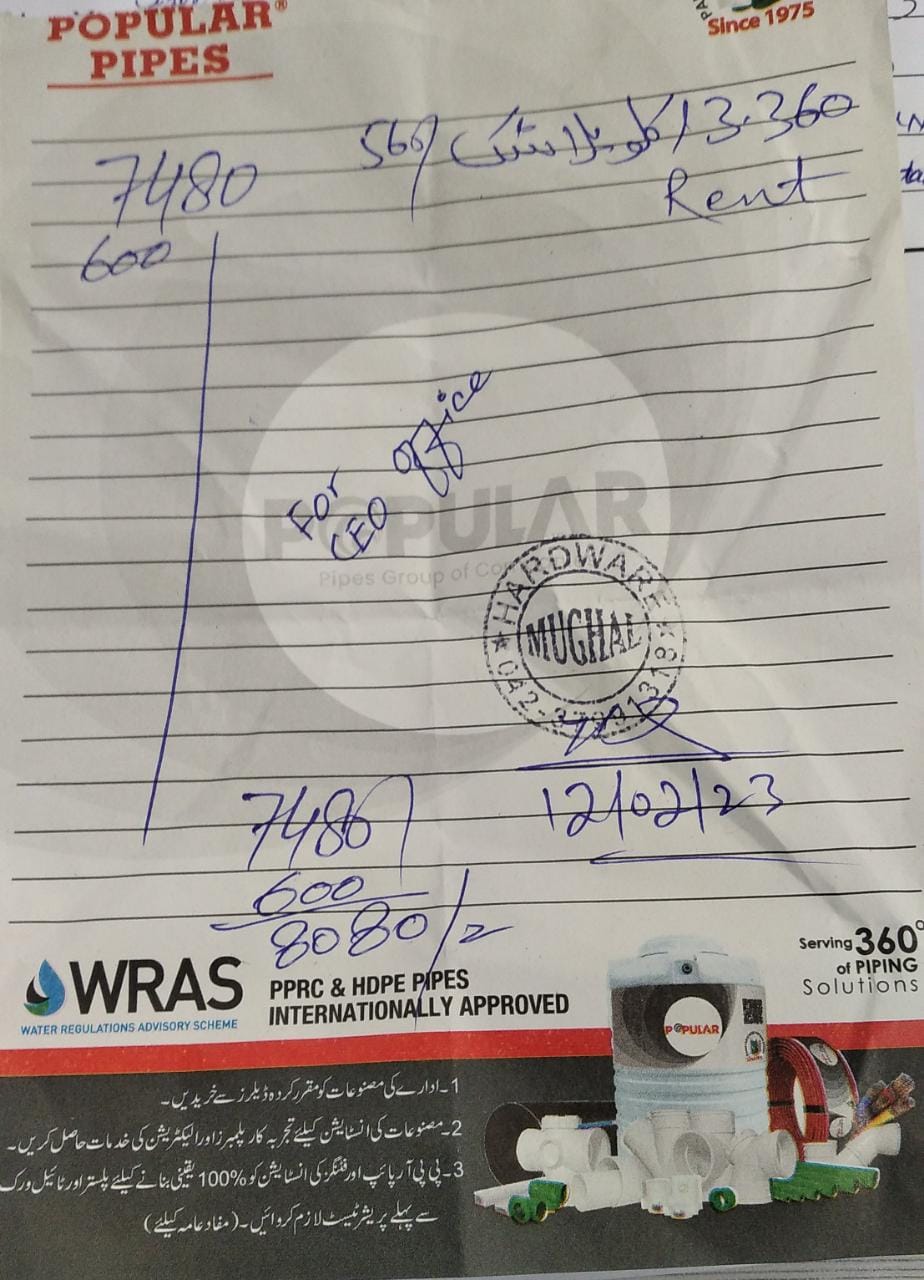 POPULAR®
PIPES
Since 1975
7480 560/ کلو پلاسٹک / 13.360
600 Rent
For
CEO office
POPULAR
Pipes Group of Co
HARDWARE
MUGHAL
042-
12/02/23
7480/
600
8080/=
WRAS
WATER REGULATIONS ADVISORY SCHEME
PPRC & HDPE PIPES
INTERNATIONALLY APPROVED
Serving 360°
of PIPING
Solutions
POPULAR
1۔ادارے کی مصنوعات کو مقرر کردہ ڈیلرز سے خریدیں۔
2۔مصنوعات کی انسٹالیشن کیلئے تجربہ کار پلمبرز اور الیکٹریشن کی خدمات حاصل کریں۔
3۔پی پی آر پائپ اور فٹنگز کی انسٹالیشن کو 100% یقینی بنانے کیلئے پلستر اور ٹائیل ورک
سے پہلے پریشر ٹیسٹ لازم کروائیں۔(مفاد عامہ کیلئے)